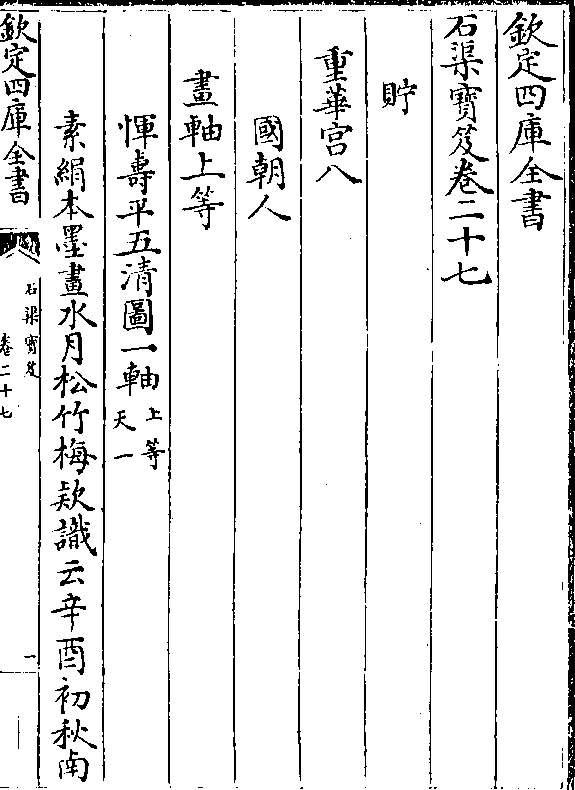 欽定四庫全書
石渠寶笈卷二十七
貯
重華宮八
國朝人
畫軸上等
惲壽平五清圖一軸上等天一
素絹本墨畫水月松竹梅款識云辛酉初秋南
欽定四庫全書
石渠寶笈
卷二十七
一